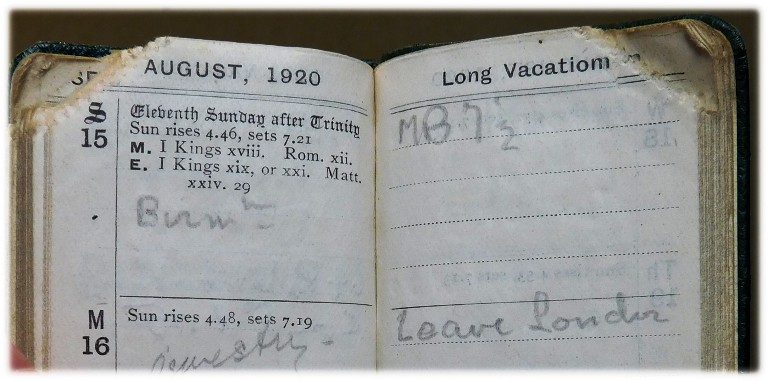 AUGUST, 1920
S
15
Eleventh Sunday after Trinity
Sun rises 4.46, sets 7.21
M. I Kings xviii. Rom. xii.
E. I Kings xix, or xxi. Matt.
xxiv. 29
Birmm
M
16
Sun rises 4.48, sets 7.19
Long Vacation
MB 7 1/2
Leave London